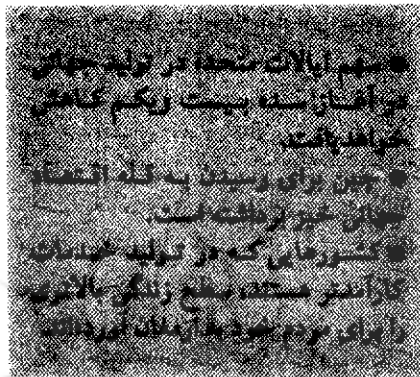 ● سهم ایالات متحده در تولید جهانی
در آغاز سده بیست ویکم کاهش
خواهد یافت.
● چین برای رسیدن به قله اقتصاد
جهانی خیز برداشته است.
● کشورهایی که در تولید خدمات
کارآمدتر هستند، سطح زندگی بالاتری
را برای مردم خود به ارمغان آورده‌اند.